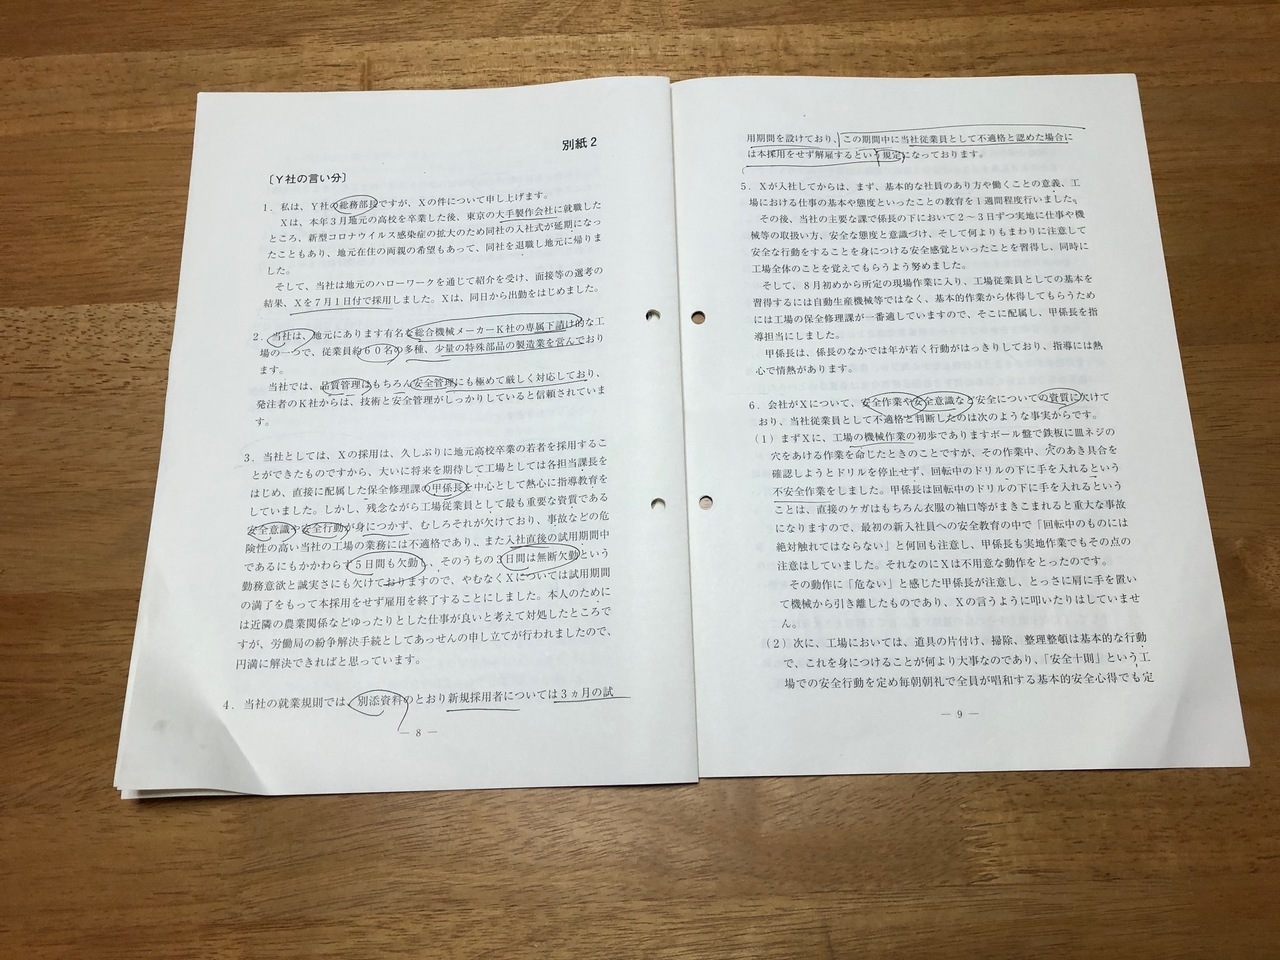 別紙2
〔Y社の言い分〕
1．私は、Y社の総務部長ですが、Xの件について申し上げます。
Xは、本年3月地元の高校を卒業した後、東京の大手製作会社に就職した
ところ、新型コロナウイルス感染症の拡大のため同社の入社式が延期になっ
たこともあり、地元在住の両親の希望もあって、同社を退職し地元に帰りま
した。
そして、当社は地元のハローワークを通じて紹介を受け、面接等の選考の
結果、Xを7月1日付で採用しました。Xは、同日から出勤をはじめました。
2．当社は、地元にあります有名な総合機械メーカーK社の専属下請け的な工
場の一つで、従業員約60名の多種、少量の特殊部品の製造業を営んでおり
ます。
当社では、品質管理はもちろん安全管理にも極めて厳しく対応しており、
発注者のK社からは、技術と安全管理がしっかりしていると信頼されていま
す。
3．当社としては、Xの採用は、久しぶりに地元高校卒業の若者を採用するこ
とができたものですから、大いに将来を期待して工場としては各担当課長を
はじめ、直接に配属した保全修理課の甲係長を中心として熱心に指導教育を
していました。しかし、残念ながら工場従業員として最も重要な資質である
安全意識や安全行動が身につかず、むしろそれが欠けており、事故などの危
険性の高い当社の工場の業務には不適格であり、また入社直後の試用期間中
であるにもかかわらず5日間も欠勤し、そのうちの3日間は無断欠勤という
勤務意欲と誠実さにも欠けておりますので、やむなくXについては試用期間
の満了をもって本採用をせず雇用を終了することにしました。本人のために
は近隣の農業関係などゆったりとした仕事が良いと考えて対処したところで
すが、労働局の紛争解決手続としてあっせんの申し立てが行われましたので、
円満に解決できればと思っています。
4．当社の就業規則では、別添資料のとおり新規採用者については3ヵ月の試
― 8 ―
用期間を設けており、この期間中に当社従業員として不適格と認めた場合に
は本採用をせず解雇するという規定になっております。
5．Xが入社してからは、まず、基本的な社員のあり方や働くことの意義、工
場における仕事の基本や態度といったことの教育を1週間程度行いました。
その後、当社の主要な課で係長の下において2～3日ずつ実地に仕事や機
械等の取扱い方、安全な態度と意識づけ、そして何よりもまわりに注意して
安全な行動をすることを身につける安全感覚といったことを習得し、同時に
工場全体のことを覚えてもらうよう努めました。
そして、8月初めから所定の現場作業に入り、工場従業員としての基本を
習得するには自動生産機械等ではなく、基本的作業から体得してもらうため
には工場の保全修理課が一番適していますので、そこに配属し、甲係長を指
導担当にしました。
甲係長は、係長のなかでは年が若く行動がはっきりしており、指導には熱
心で情熱があります。
6．会社がXについて、安全作業や安全意識など安全についての資質に欠けて
おり、当社従業員として不適格と判断したのは次のような事実からです。
（1）まずXに、工場の機械作業の初歩でありますボール盤で鉄板に皿ネジの
穴をあける作業を命じたときのことですが、その作業中、穴のあき具合を
確認しようとドリルを停止せず、回転中のドリルの下に手を入れるという
不安全作業をしました。甲係長は回転中のドリルの下に手を入れるという
ことは、直接のケガはもちろん衣服の袖口等がまきこまれると重大な事故
になりますので、最初の新入社員への安全教育の中で「回転中のものには
絶対触れてはならない」と何回も注意し、甲係長も実地作業でもその点の
注意はしていました。それなのにXは不用意な動作をとったのです。
その動作に「危ない」と感じた甲係長が注意し、とっさに肩に手を置い
て機械から引き離したものであり、Xの言うように叩いたりはしていませ
ん。
（2）次に、工場においては、道具の片付け、掃除、整理整頓は基本的な行動
で、これを身につけることが何より大事なのであり、「安全十則」という工
場での安全行動を定め毎朝朝礼で全員が唱和する基本的安全心得でも定
― 9 ―